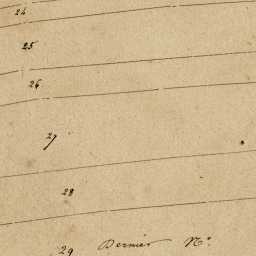 24
25
26
27
28
29 Dernier N.º